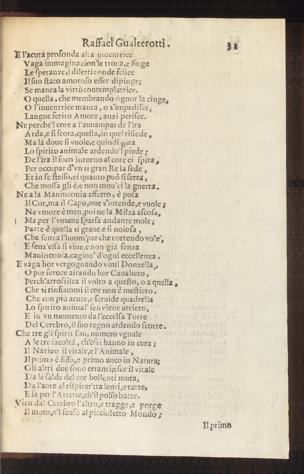 Raffael Gualterotti. 32
E l'acuta profonda alta inuentrice
Vaga immaginazion' le troua, e finge
Le speranze, i diletti onde felice
Il suo stato amoroso esser dipinge;
Se manca la virtù contemplatrice.
O quella, che membrando ognor la cinge,
O l'inuentrice manca, o s'impedisce,
Langue ferito Amore, anzi perisce.
Ne perche'l core a l'auuampar de l'ira
Arda, e si scota, questa, in quel risiede,
Ma là doue si vuole, e quindi gira
Lo spirito animale ardendo'l piede;
De l'ira il foco intorno al core ei spira,
Per occupar d'vn si gran Re la sede,
Et in se stesso, ei quanto può si serra,
Che mossa gli è, e non mou'ei la guerra.
Ne a la Maninconia assetto, è posa
Il Cor, ma il Capo, oue s'intende, e vuole;
Ne v'more è men, poi ne la Milza ascosa,
Ma per l'vmana sparsa andante mole;
Parte è quella si graue, e si noiosa,
Che senza l'huom' par che correndo vole,
E senz'essa si viue, e non già senza
Maninconia, cagion' d'ogni eccellenza.
E vaga hor vergognando vmil Donzella,
O pur feroce airando hor Caualiero,
Perch'arrossisca il volto a questo, o a quella,
Che si rinfiammi il cor non è mestiero.
Che con più acute, e feruide quadrella
Lo spirito animal' sen viene arciero,
E in vn momento da l'eccelsa Torre
Del Cerebro, il suo regno ardendo scorre.
Che tre gli spirti son, numero vguale
A le tre facoltà, ch'essi hanno in cura;
Il Natiuo il vitale, e l'Animale,
Il primo è fisso, e primo anco in Natura;
Gli altri due sono erranti; esce il vitale
Da le falde del cor bollenti mura,
Da l'aure al respirar tra lenti, e ratte,
E sà per l'Arterie, ch'il polso batte.
Vien dal Cerebro l'altro, e tragge, e porge
Il moto, e'l senso al piccioletto Mondo;
Il primo